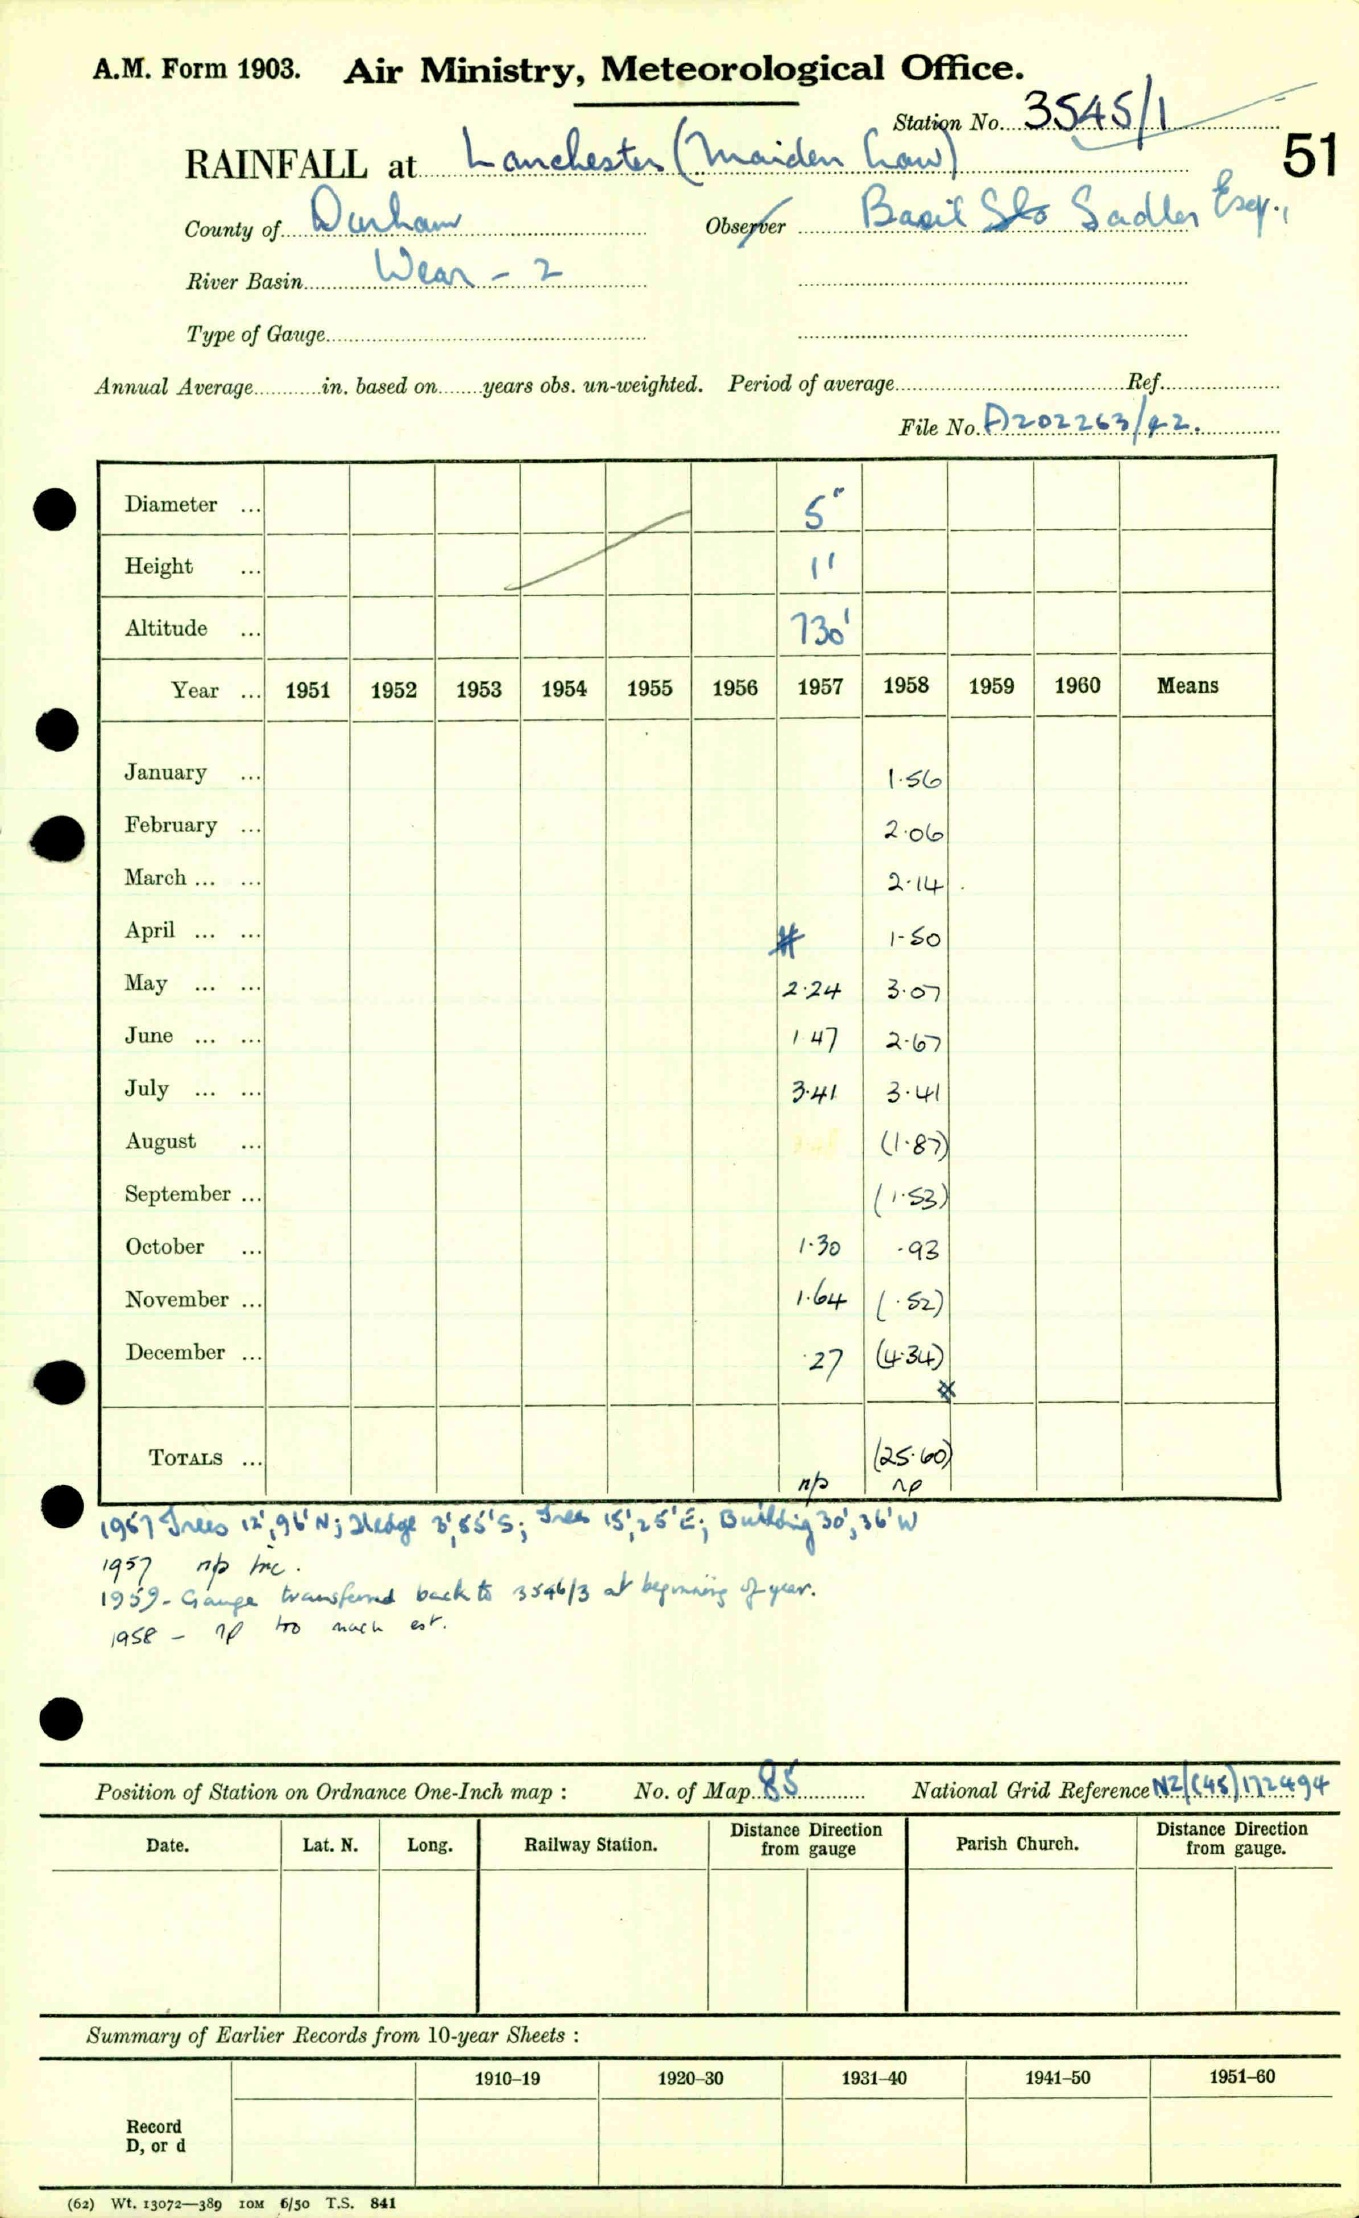 A.M. Form 1903. Air Ministry, Meteorological Office.
Station No. 3545/1
51
RAINFALL at Lanchester (Maiden Law)
County of Durham Observer Basil Sadler Esq.,
River Basin Wear - 2
Type of Gauge
Annual Average in. based on years obs. un-weighted. Period of average Ref.
File No. A202263/42.
Diameter ... 5"
Height ... 1'
Altitude ... 730'
Year ... 1951 1952 1953 1954 1955 1956 1957 1958 1959 1960 Means
January ... 1.56
February ... 2.06
March ... ... 2.14
April ... ... # 1.50
May ... ... 2.24 3.07
June ... ... 1.47 2.67
July ... ... 3.41 3.41
August ... (1.87)
September ... (1.53)
October ... 1.30 .93
November ... 1.64 (.52)
December ... .27 (4.34)
TOTALS ... (25.60)
np np
1957 Trees 12', 96' N; Hedge 3', 55' S; Trees 15', 25' E; Building 30', 36' W
1957 np inc.
1959 - Gauge transferred back to 3546/3 at beginning of year.
1958 - np too much est.
Position of Station on Ordnance One-Inch map : No. of Map 85 National Grid Reference NZ/(45)172494
Date. Lat. N. Long. Railway Station. Distance Direction from gauge Parish Church. Distance Direction from gauge.
Summary of Earlier Records from 10-year Sheets :
1910–19 1920–30 1931–40 1941–50 1951–60
Record
D, or d
(62) Wt. 13072—389 10M 6/50 T.S. 841